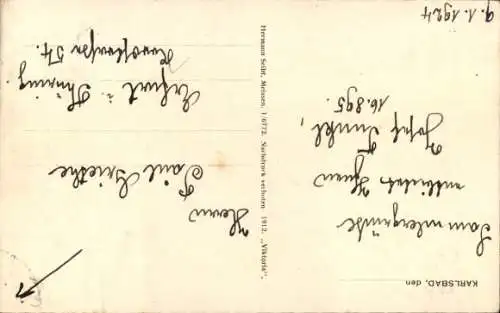 9. 1. 1924
KARLSBAD, den
Sammlergrüße
entbietet Ihnen
Josef Tunkl,
16.895.
Hermann Seibt, Meissen, 1/6772. Nachdruck verboten 1912. „Viktoria“.
Herrn
Paul Griethe
Erfurt i. Thüring.
54.